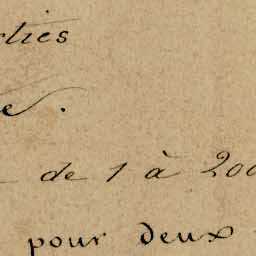 rties
e.
de 1 à 200
pour deux